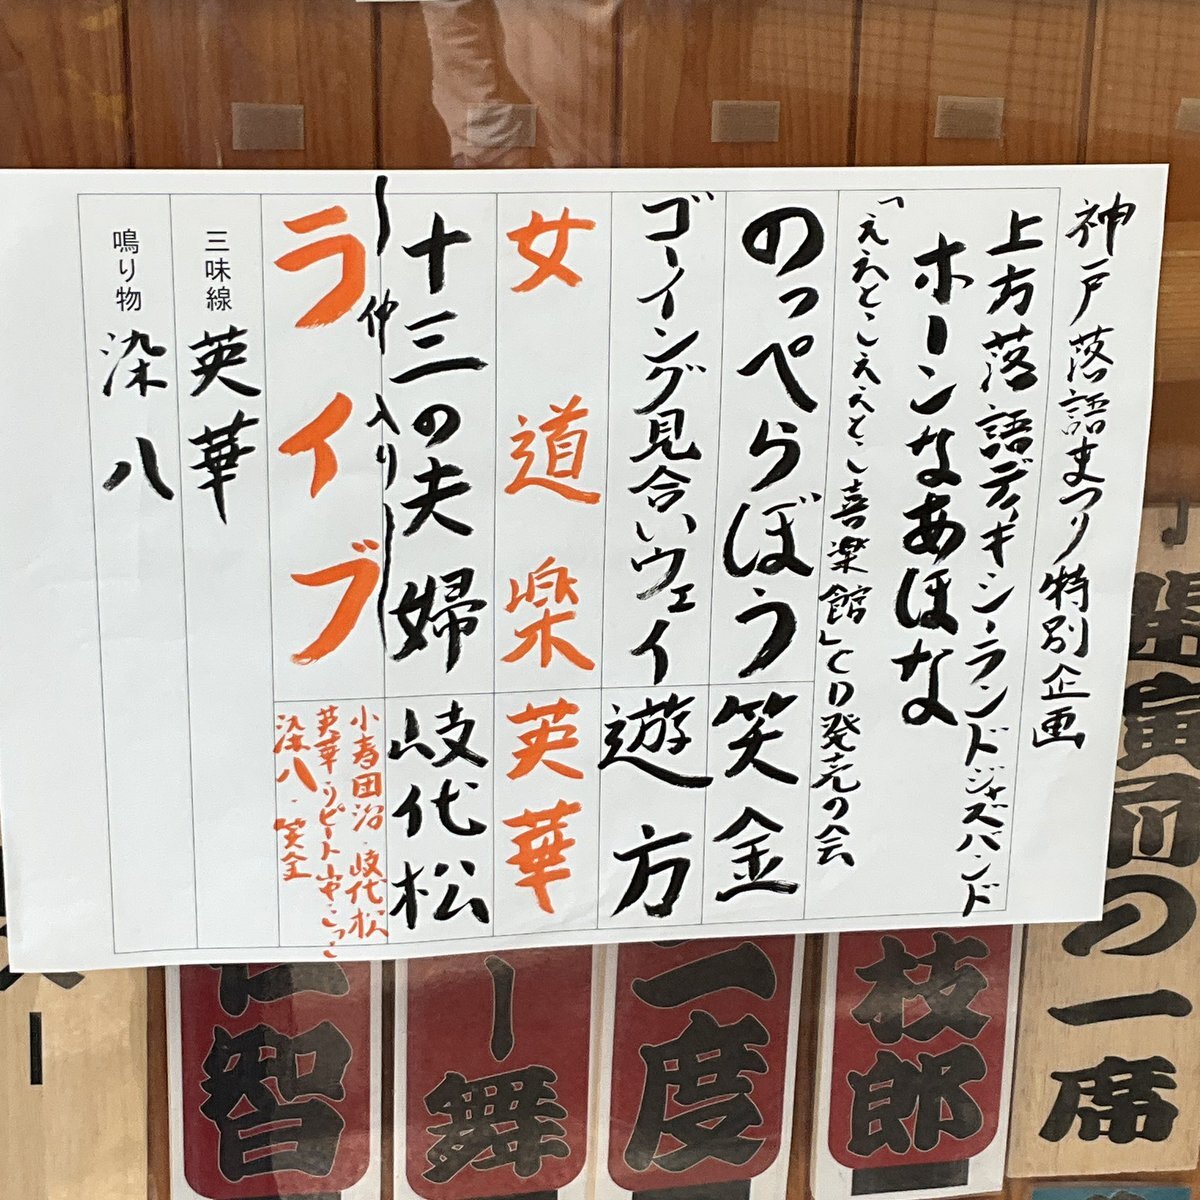 神戸落語まつり特別企画
上方落語ディキシーランドジャズバンド
ホーンなあほな
「ええとこええとこ喜楽館」CD発売の会
のっぺらぼう 笑金
ゴーイング見合いウェイ 遊方
女道楽 英華
十三の夫婦 岐代松
〜仲入り〜
ライブ
小寿団治・岐代松
英華・リピート山中・こっこ
染八・笑金
三味線 英華
鳴り物 染八
の一席
枝郎
二度
一舞
仁智